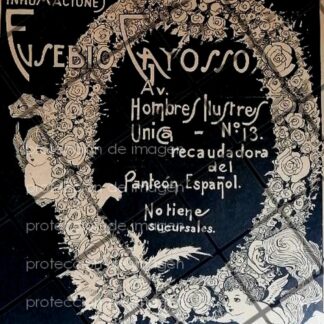 INHUMACIONES
EUSEBIO GAYOSSO
Av.
Hombres Ilustres
Unica - Nº 13.
recaudadora
del
Panteón Español.
No tiene
sucursales.
protección de imagen
protección de imagen
protección de imagen
protección de imagen